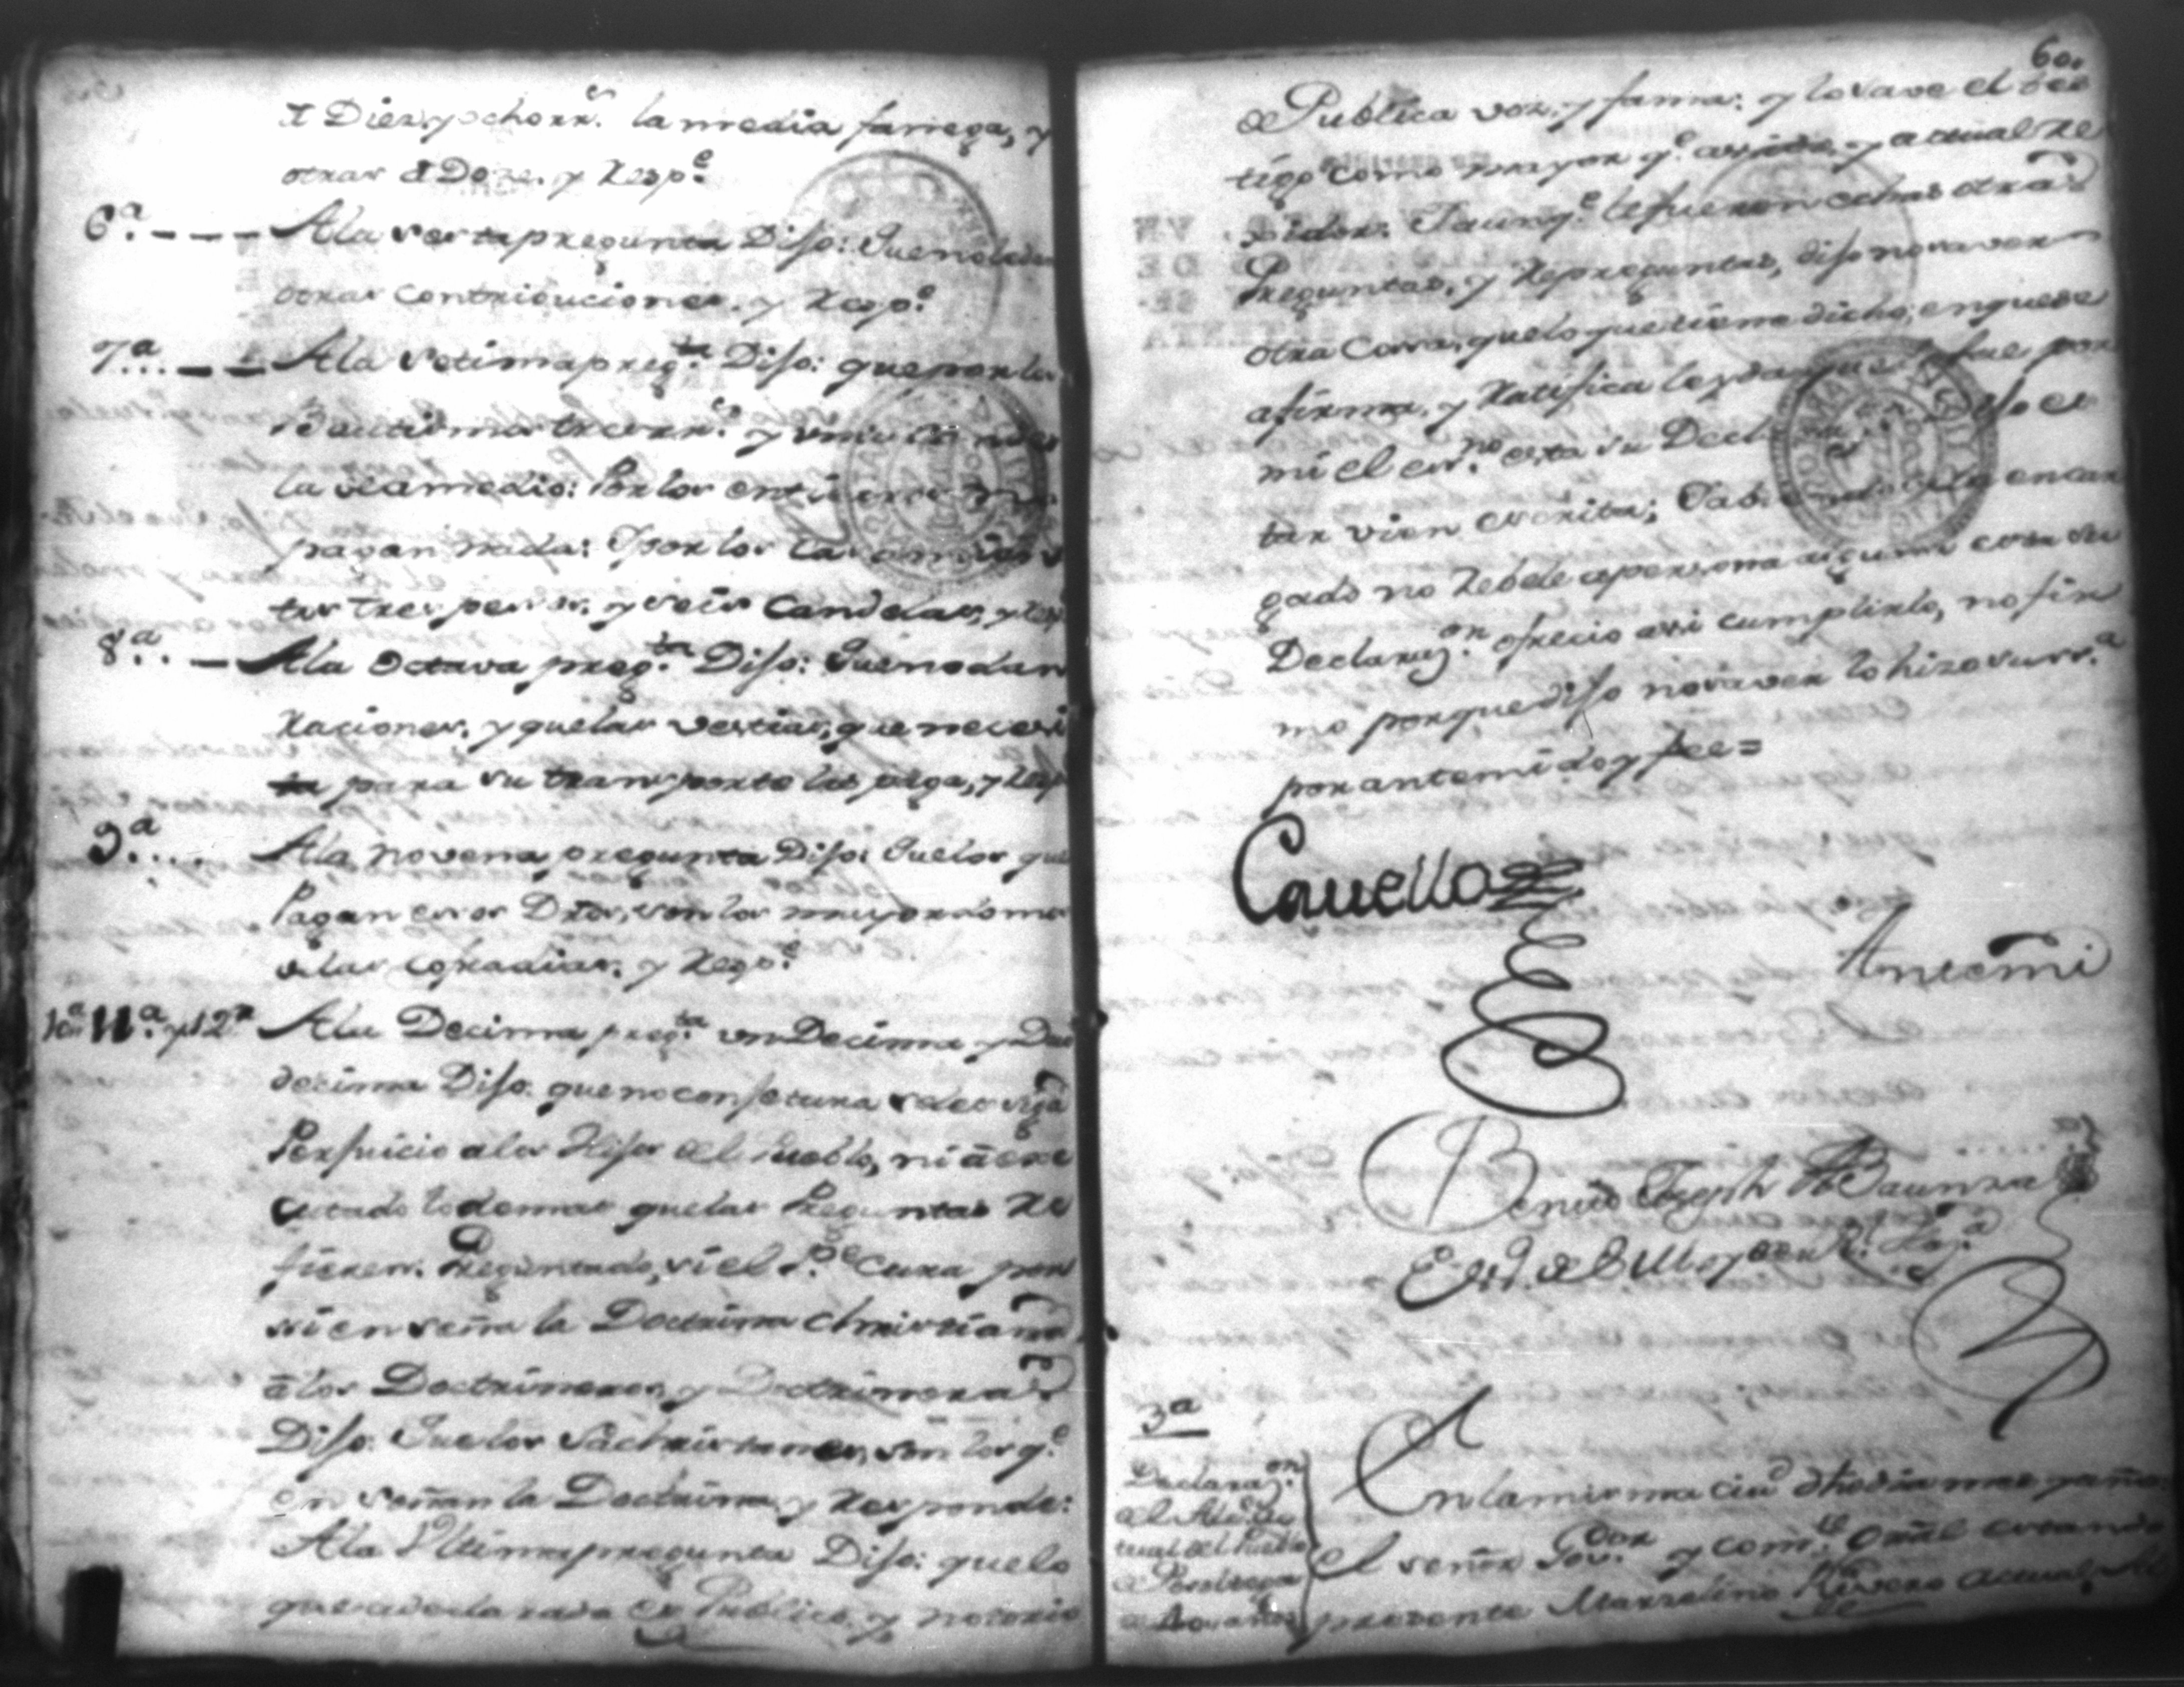 â Diez, y ocho rr.s la media fanega, y
otras â Doze. y Resp.e
6.a --- Ala sesta pregunta Dijo: Que no
otras contribuciones. y Resp.e
7.a --- Ala Setima preg.ta Dijo: que por los
Bautismos tres rr.s y
la vela medio: Por los entierros no
pagan nada: Y por los
tos tres pesos, y seis Candelas, y Resp
8.a -- Ala Octava preg.ta Dijo: Que no dan
Raciones, y que las vestias, que necesi
ta para su transporto las paga, y Resp
9.a .... Ala novena pregunta Dijo: Que los que
Pagan esos Dros, son los mayordomos
de las cofradias. y Resp.e
10.a 11.a y 12.a Ala Decima preg.ta un Decima y Duo
decima Dijo. que no conjetura se les siga
Perjuicio a los Hijos del Pueblo, ni â exe
cutado lo demas que las Preguntas Re
fieren. Preguntado, si el P.e Cura por
si enseña la Doctrina christiana
â los Doctrineros, y Doctrineras
Dijo. Que los Sachristanes, son los q.e
enseñan la Doctrina, y Responde:
Ala Ultima pregunta Dijo: que lo
que a declarado es Publico, y notorio
60.
de Publica voz, y fama: y lo save el tes
tigo como mayor q.e a sido, y actual Re
xidor. Y aunq.e le fueron echas otras
Preguntas, y Repreguntas, dijo no saver
otra Cosa, que lo que tiene dicho, en que se
afirma, y Ratifica leyda que le fue por
mi el es.no esta su Decl
tar vien escrita; Y
gado no Rebele a persona alguna esta su
Declaraz.on ofrecio asi cumplirlo, no fir
mo porque dijo no saver lo hizo su sr.a
por ante mi doy fee =
Cavello
Ante mi
Benito Joseph
Es.no de S. M. y
3.a
Declaraz.on
del Alc.e ac
tual del Pueblo
de
de años
En la misma ciu.d dho dia mes y año
el señor Gov.dor y com.te Gral estando
presente Marzelino Rivera actual Al